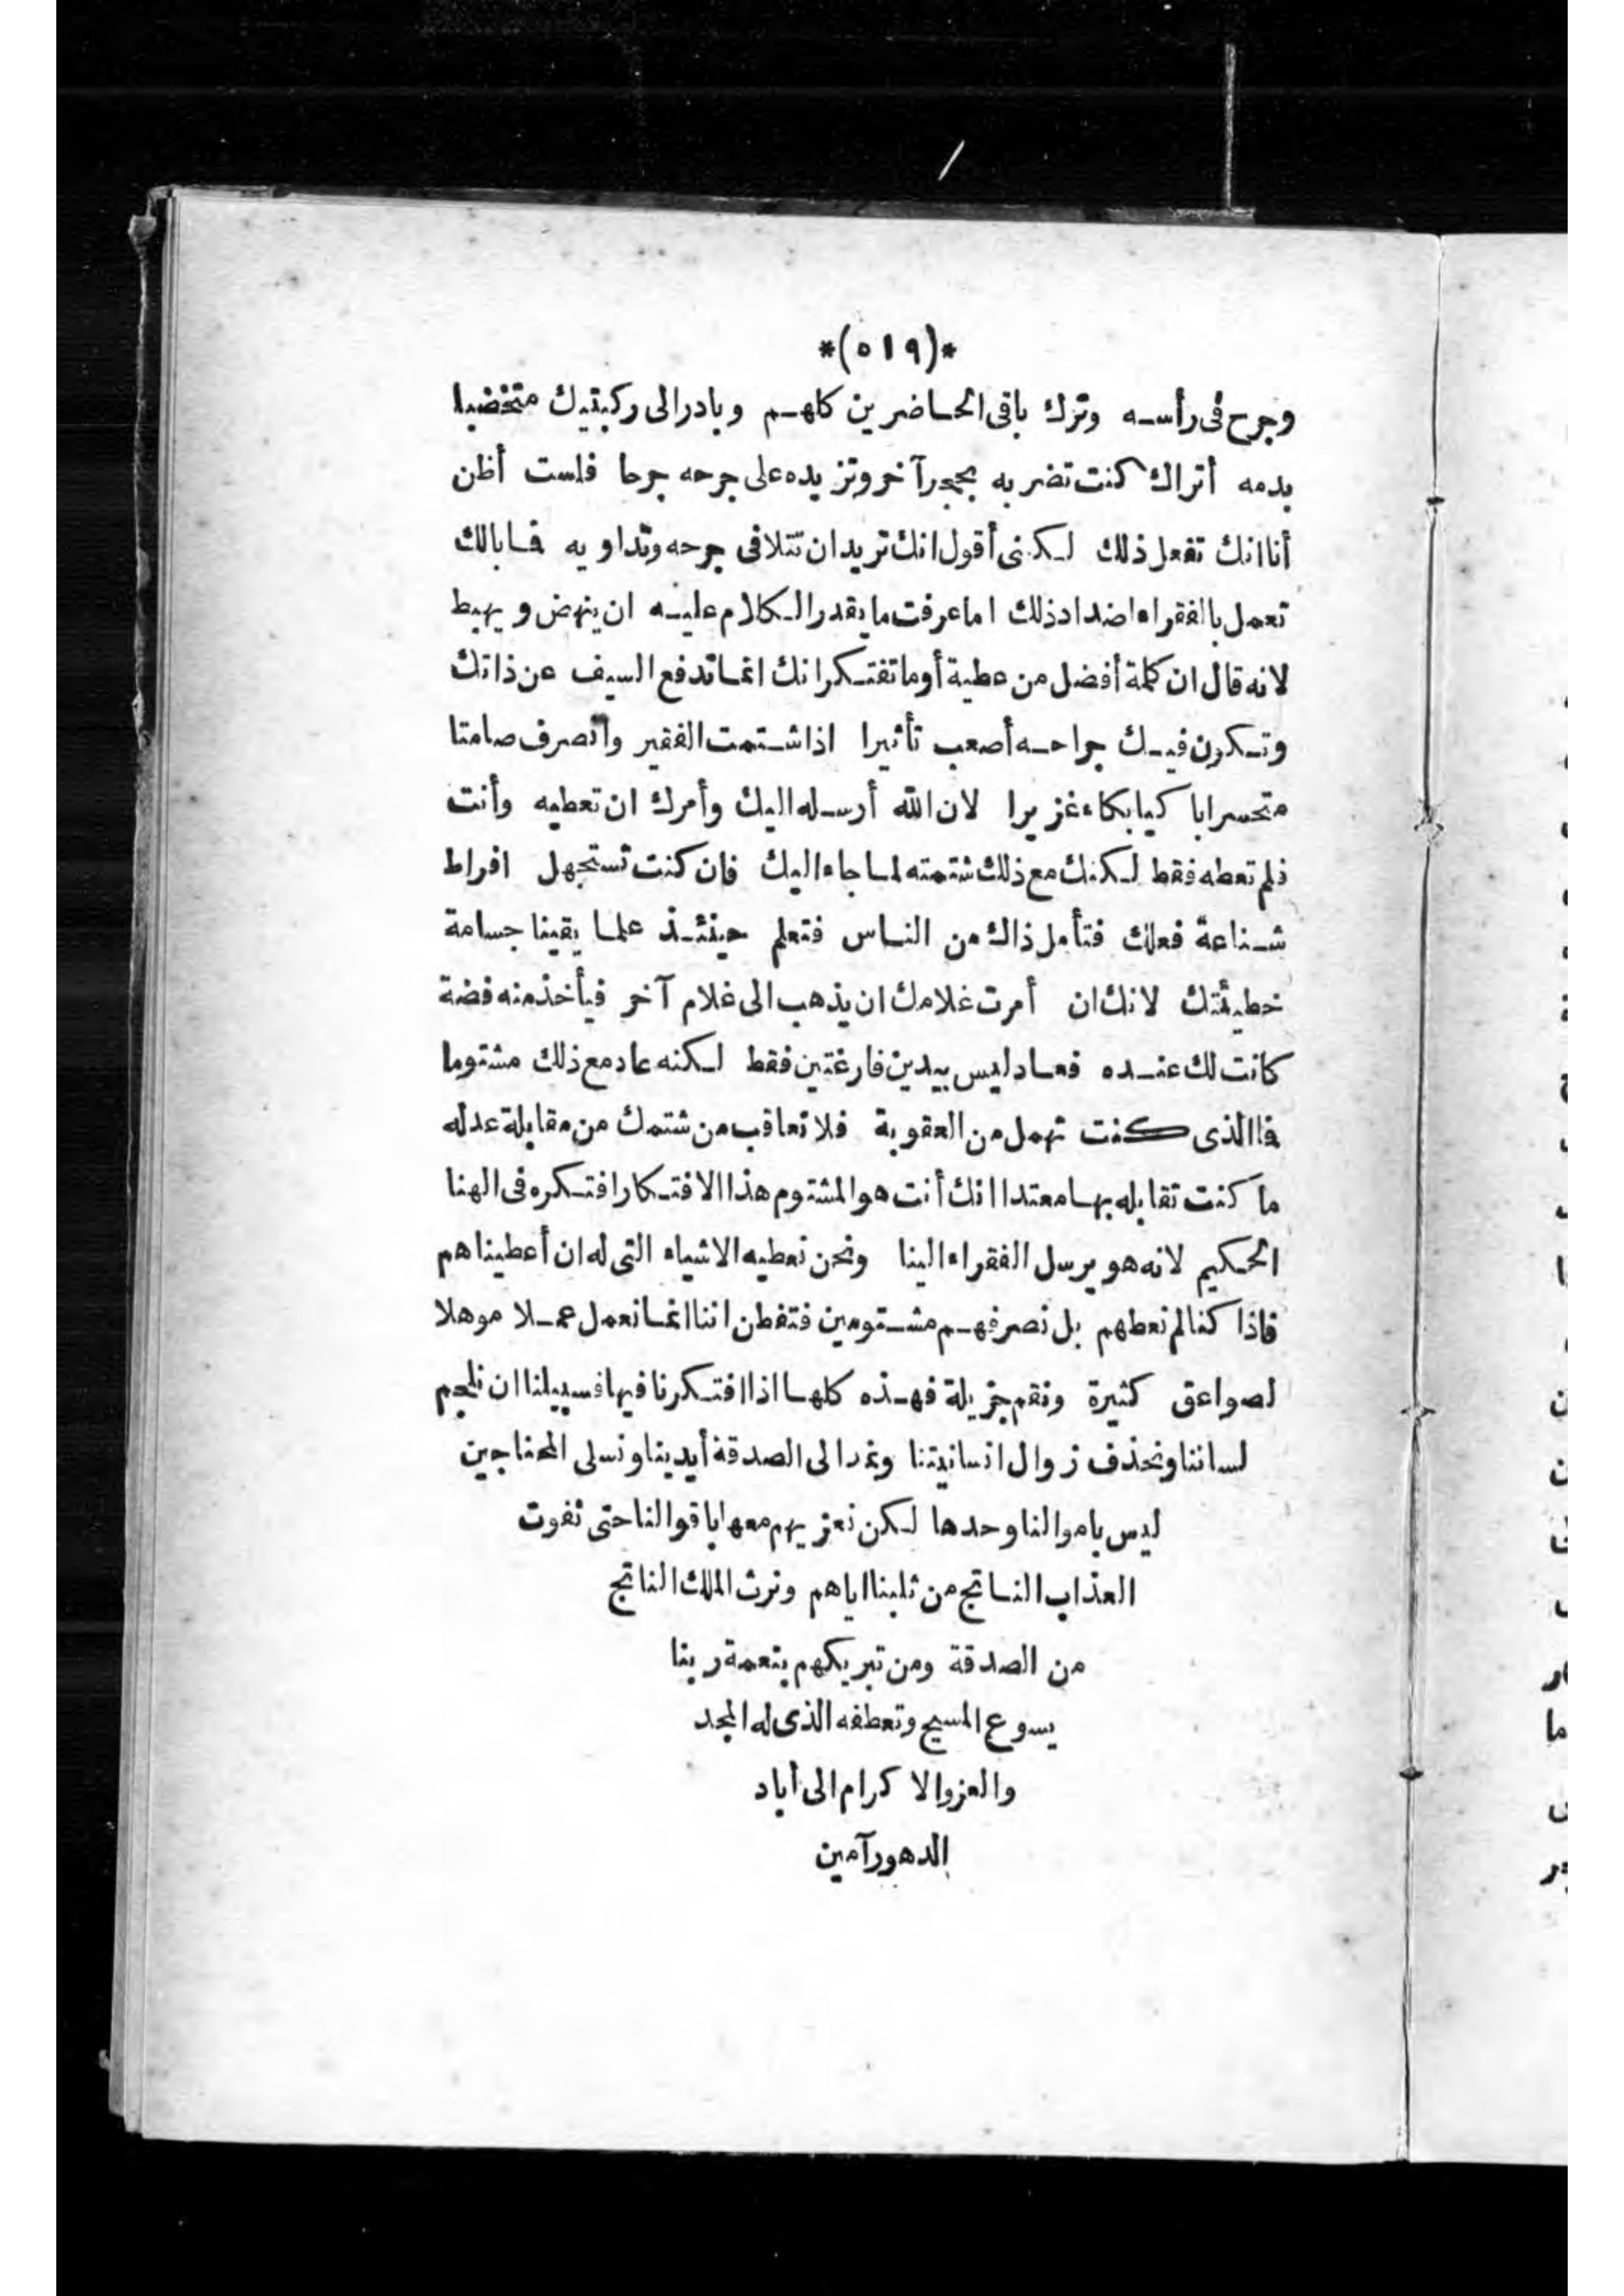 *(٥١٩)*
وجرح في رأسه وترك باقي الحاضرين كلهم وبادر الى ركبتيك متخضبا
بدمه أتراك كنت تضربه بحجر آخر وتزيده على جرحه جرحا فلست أظن
أنا انك تفعل ذلك لكنني أقول انك تريد ان تتلافى جرحه وتداويه فما بالك
تعمل بالفقراء اضداد ذلك اما عرفت ما يقدر الكلام عليه ان ينهض ويهبط
لانه قال ان كلمة أفضل من عطية أوما تفتكر انك انما تدفع السيف عن ذاتك
وتكون فيك جراحه أصعب تأثيرا اذا شتمت الفقير وانصرف صامتا
متحسرا باكيا بكاء غزيرا لان الله أرسله اليك وأمرك ان تعطيه وأنت
فلم تعطه فقط لكنك مع ذلك شتمته لما جاء اليك فان كنت تستجهل افراط
شناعة فعلك فتأمل ذاك من الناس فتعلم حينئذ علما يقينا جسامة
خطيئتك لانك ان أمرت غلامك ان يذهب الى غلام آخر فيأخذ منه فضة
كانت لك عنده فعاد ليس بيدين فارغتين فقط لكنه عاد مع ذلك مشتوما
فما الذي كنت تهمل من العقوبة فلا تعاقب من شتمك من مقابلة عدله
ما كنت تقابله بها معتدا انك أنت هو المشتوم هذا الافتكار افتكره في الهنا
الحكيم لانه هو يرسل الفقراء الينا ونحن نعطيه الاشياء التي له ان أعطيناهم
فاذا كنا لم نعطهم بل نصرفهم مشتومين فتفطن اننا انما نعمل عملا موهلا
لصواعق كثيرة ونقم جزيلة فهذه كلها اذا افتكرنا فيها فسبيلنا ان نلجم
لساننا ونحذف زوال انسانيتنا ونمد الى الصدقة أيدينا ونسلى المحتاجين
ليس باموالنا وحدها لكن نعزيهم معها باقوالنا حتى نفوت
العذاب الناتج من ثلبنا اياهم ونرث الملك الناتج
من الصدقة ومن تبريكهم بنعمة ربنا
يسوع المسيح وتعطفه الذي له المجد
والعز والاكرام الى اباد
الدهور آمين